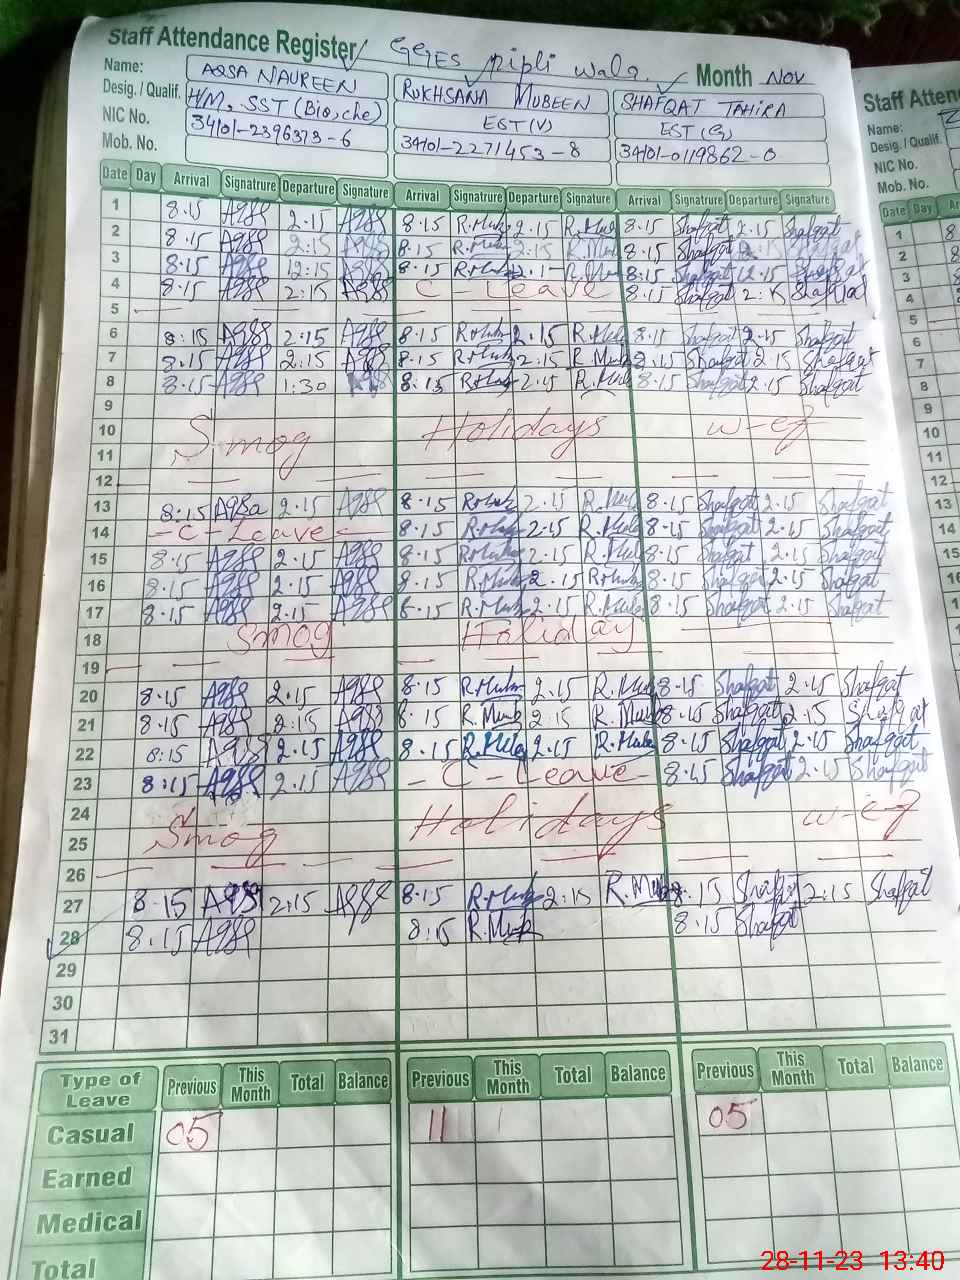 Staff Attendance Register GGES Pipli wala. Month Nov
Name: AQSA NAUREEN RUKHSANA MUBEEN SHAFQAT TAHIRA
Desig. / Qualif. H/M, SST (Bio,che) EST (V) EST (G)
NIC No. 34101-2396373-6 34101-2271453-8 34101-0119862-0
Mob. No.
Date Day Arrival Signatrure Departure Signature Arrival Signatrure Departure Signature Arrival Signatrure Departure Signature
1 8.15 2.15 8.15 R.Mub 2.15 R.Mub 8.15 Shafqat 2.15 Shafqat
2 8.15 2:15 8.15 R.Mub 2:15 R.Mub 8.15 Shafqat 2.15 Shafqat
3 8.15 12:15 8.15 R.Mub 2.1 R.Mub 8:15 Shafqat 12.15 Shafqat
4 8.15 2:15 C - Leave 8.15 Shafqat 2:15 Shafqat
5
6 8:15 2:15 8.15 R.Mub 2.15 R.Mub 8.15 Shafqat 2.15 Shafqat
7 8.15 2:15 8.15 R.Mub 2:15 R.Mub 8.15 Shafqat 2.15 Shafqat
8 8.15 1:30 8.15 R.Mub 2.15 R.Mub 8.15 Shafqat 2.15 Shafqat
9
10 Smog Holidays w-ef
11
12
13 8:15 Aqsa 2.15 8.15 R.Mub 2.15 R.Mub 8.15 Shafqat 2.15 Shafqat
14 - C - Leave - 8.15 R.Mub 2.15 R.Mub 8.15 Shafqat 2.15 Shafqat
15 8.15 2.15 8.15 R.Mub 2.15 R.Mub 8.15 Shafqat 2.15 Shafqat
16 8.15 2.15 8.15 R.Mub 2.15 R.Mub 8.15 Shafqat 2.15 Shafqat
17 8.15 2.15 8.15 R.Mub 2.15 R.Mub 8.15 Shafqat 2.15 Shafqat
18 Smog Holiday
19
20 8.15 2.15 8.15 R.Mub 2.15 R.Mub 8.15 Shafqat 2.15 Shafqat
21 8.15 2:15 8.15 R.Mub 2:15 R.Mub 8.15 Shafqat 2.15 Shafqat
22 8:15 2.15 8.15 R.Mub 2.15 R.Mub 8.15 Shafqat 2.15 Shafqat
23 8:15 2.15 - C - Leave - 8.15 Shafqat 2.15 Shafqat
24
25 Smog Holidays w-ef
26
27 8.15 2:15 8.15 R.Mub 2:15 R.Mub 8.15 Shafqat 2:15 Shafqat
28 8.15 8:15 R.Mub 8.15 Shafqat
29
30
31
Type of Leave Previous This Month Total Balance Previous This Month Total Balance Previous This Month Total Balance
Casual 05 11 1 05
Earned
Medical
Total
Staff Atten
Name:
Desig. / Qualif.
NIC No.
Mob. No.
Date Day Ar
1 8
2
3
4
5
6
7
8
9
10
11
12
13
14
15
16
28-11-23 13:40